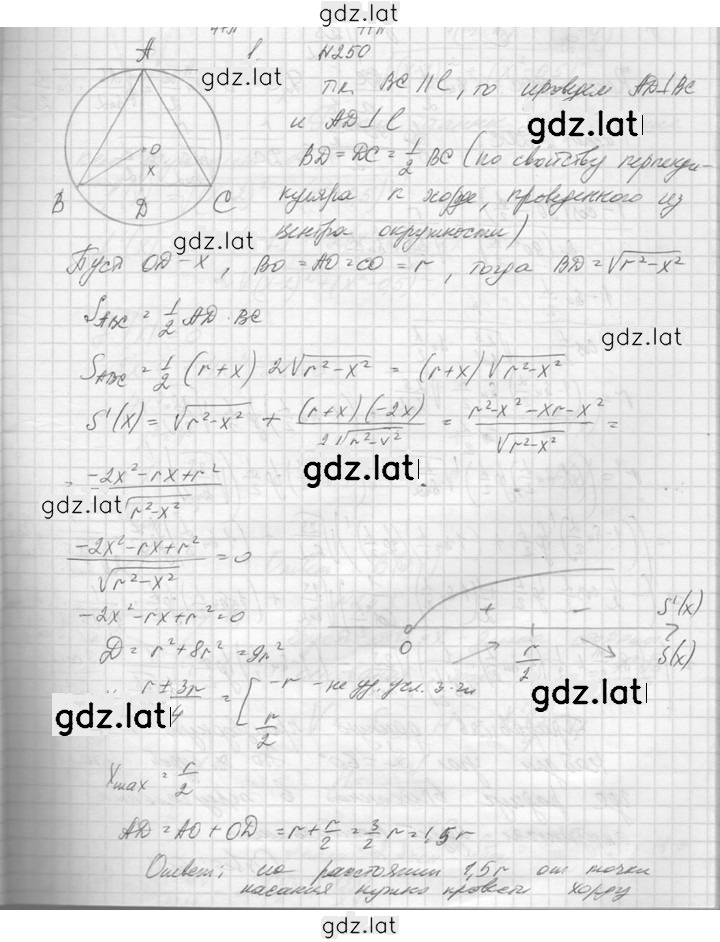 gdz.lat
A l N250
gdz.lat т.к. BC || l, то проведем AD⊥BC
и AD⊥l gdz.lat
O BD = DC = 1/2 BC (по свойству перпенди-
x
B D C куляра к хорде, проведенного из
gdz.lat центра окружности)
Пусть OD - x, BO = AO = CO = r, тогда BD = √(r²-x²)
S_ABC = 1/2 AD · BC
gdz.lat
S_ABC = 1/2 (r+x) 2√(r²-x²) = (r+x)√(r²-x²)
S'(x) = √(r²-x²) + (r+x)(-2x)/2√(r²-x²) = (r²-x²-xr-x²)/√(r²-x²) =
gdz.lat
= (-2x²-rx+r²)/√(r²-x²)
gdz.lat
(-2x²-rx+r²)/√(r²-x²) = 0
-2x²-rx+r²=0
+ - S'(x)
D = r²+8r² = 9r²
0 r/2 S(x)
(r±3r)/4 = [ -r - не уд. усл. з-чи
r/2
gdz.lat gdz.lat
x max = r/2
AD = AO + OD = r + r/2 = 3/2 r = 1,5r
Ответ: на расстоянии 1,5r от точки
касания нужно провести хорду
gdz.lat